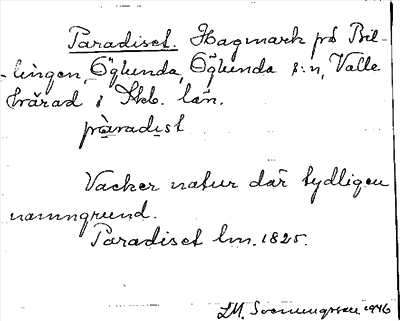 Paradiset. Hagmark på Bil-
lingen, Öglunda, Öglunda s:n, Valle
härad i Skb. län.
pàradist
Vacker natur där tydligen
namngrund.
Paradiset lm. 1825.
LM. Svenungsson 1946